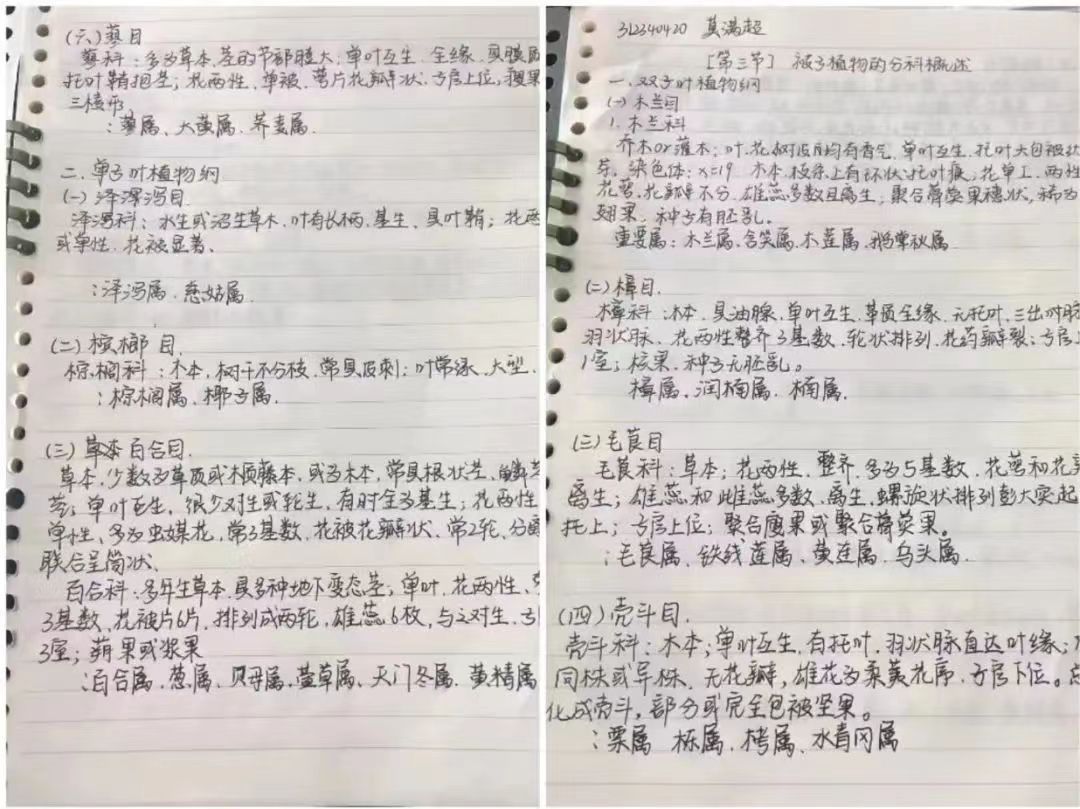 (六)蓼目
蓼科：多为草本，茎的节部膨大；单叶互生，全缘，具膜质
托叶鞘抱茎；花两性，单被，萼片花瓣状，子房上位，瘦果
三棱形
：蓼属、大黄属、荞麦属.
二.单子叶植物纲
(一)泽泻目
泽泻科：水生或沼生草本，叶有长柄，基生，具叶鞘；花两
或单性，花被显著、
：泽泻属.慈姑属.
(二)槟榔目.
棕榈科：木本，树干不分枝，常具皮刺；叶常绿，大型.
：棕榈属、椰子属.
(三)百合目.
草本，少数为草质或木质藤本，或为木本，常具根状茎，鳞茎
茎；单叶互生，很少对性或轮生，有时全为基生；花两性
单性、多为虫媒花，常3基数，花被花瓣状，常2轮，分离
联合呈筒状、
百合科：多年生草本，具多种地下变态茎；单叶，花两性、
3基数，花被片6片，排列成两轮，雄蕊6枚，与之对生，子
3室；蒴果或浆果
：百合属、葱属、贝母属、萱草属、天门冬属、黄精属
312340420 莫满超
[第三节] 被子植物的分科概述
一、双子叶植物纲
(一)木兰目
1、木兰科
乔木or灌木；叶、花、树皮均有香气，单叶互生，托叶大包被幼
芽，染色体：x=19 木本，枝条上有环状托叶痕，花单工，两性
花萼、花瓣不分，雄蕊多数且离生；聚合蓇葖果穗状，稀为
翅果，种子有胚乳。
重要属：木兰属、含笑属、木莲属、鹅掌楸属
(二)樟目.
樟科：木本，具油腺，单叶互生，革质全缘，无托叶，三出叶脉
羽状脉，花两性整齐3基数，轮状排列，花药瓣裂；子房
1室；核果，种子无胚乳。
樟属、润楠属、楠属.
(三)毛茛目
毛茛科：草本；花两性，整齐，多为5基数，花萼和花
离生；雄蕊和雌蕊多数，离生，螺旋状排列膨大突起
托上；子房上位；聚合瘦果或聚合蓇葖果。
：毛茛属、铁线莲属、黄连属、乌头属.
(四)壳斗目.
壳斗科：木本；单叶互生，有托叶，羽状脉直达叶缘；
同株或异株，无花瓣，雄花为柔荑花序，子房下位。总
化成壳斗，部分或完全包被坚果。
：栗属 栎属、栲属、水青冈属